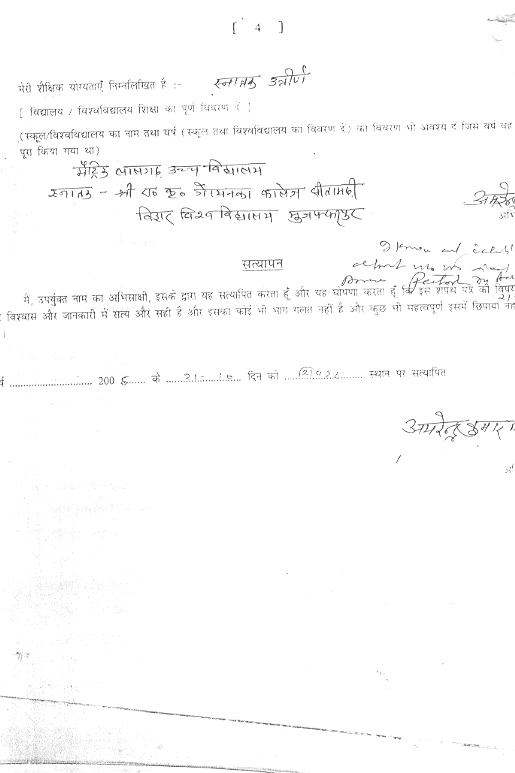 [ 4 ]
मेरी शैक्षिक योग्यताएँ निम्नलिखित है :- स्नातक उत्तीर्ण
[ विद्यालय / विश्वविद्यालय शिक्षा का पूर्ण विवरण दें ]
(स्कूल/विश्वविद्यालय का नाम तथा वर्ष (स्कूल तथा विश्वविद्यालय का विवरण दें) का विवरण भी अवश्य दें जिस वर्ष वह
पूरा किया गया था)
मैट्रिक उच्च विद्यालय
स्नातक - श्री रा० कृ० गोयनका कालेज सीतामढ़ी
बिहार विश्व विद्यालय मुजफ्फरपुर
अमरेन्द्र
सत्यापन
I know
मैं, उपर्युक्त नाम का अभिसाक्षी, इसके द्वारा यह सत्यापित करता हूँ और यह घोषणा करता हूँ कि इस शपथ पत्र की
विश्वास और जानकारी में सत्य और सही है और इसका कोई भी भाग गलत नहीं है और कुछ भी महत्वपूर्ण इसमें छिपाया
200 5 के 21-10 दिन को स्थान पर सत्यापित
अमरेन्द्र कुमार